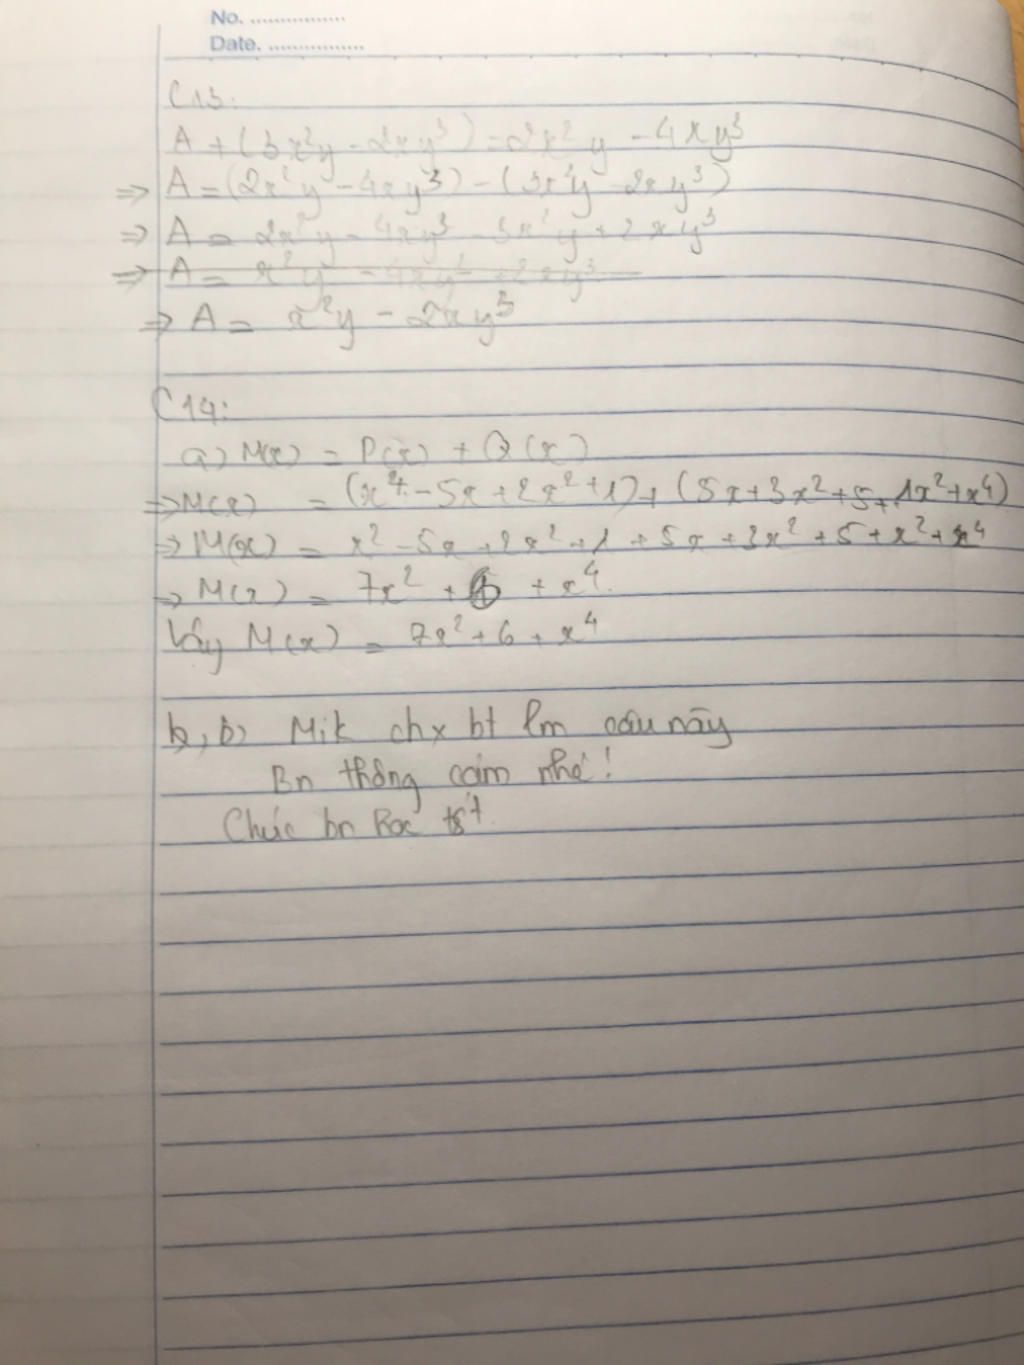 No. ................
Date. ................
C13:
A + (3x²y - 2xy³) = 2x²y - 4xy³
=> A = (2x²y - 4xy³) - (3x²y - 2xy³)
=> A = 2x²y - 4xy³ - 3x²y + 2xy³
=> A = x²y - 4xy³ + 2xy³
=> A = x²y - 2xy³
C14:
a) M(x) = P(x) + Q(x)
=> M(x) = (x⁴ - 5x + 2x² + 1) + (5x + 3x² + 5 + 1x² + x⁴)
=> M(x) = x² - 5x + 2x² + 1 + 5x + 3x² + 5 + x² + x⁴
=> M(x) = 7x² + 6 + x⁴.
Vậy M(x) = 7x² + 6 + x⁴
b, b) Mik chx bt lm câu này
Bn thông cảm nhé!
Chúc bn học tốt.